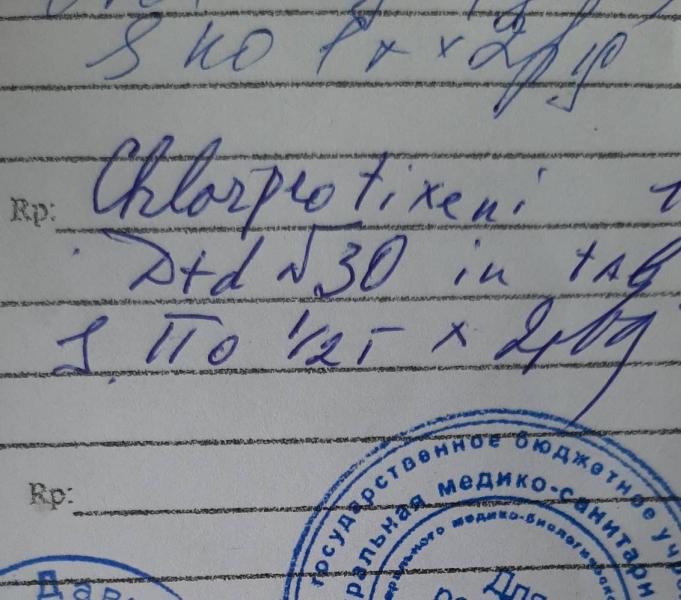 S по 1т х 2р/д
Rp: Chlorprotixeni
Dtd N30 in tab
S. По 1/2т х 2р/д
Rp:
государственное бюджетное учре
ральная медико-санитарн
ерального медико-биологическо
Для
Дав